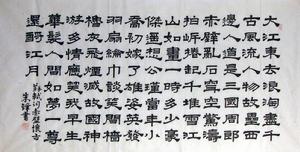 大江東去浪淘盡千
古風流人物故壘西
邊人道是三國周郎
赤壁亂石穿空驚濤
拍岸捲起千堆雪江
山如畫一時多少豪
傑遙想公瑾當年小
喬初嫁了雄姿英發
羽扇綸巾談笑間檣
櫓灰飛煙滅故國神
遊多情應笑我早生
華髮人間如夢一尊
還酹江月
蘇軾詞赤壁懷古
書